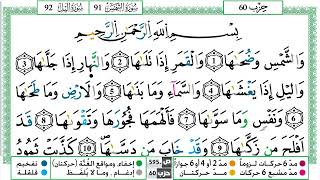 حِزْب 60 سُورَةُ الشَّمْسِ 91 سُورَةُ اللَّيْلِ 92
بِسْمِ اللَّهِ الرَّحْمَٰنِ الرَّحِيمِ
وَالشَّمْسِ وَضُحَىٰهَا ۝١ وَالْقَمَرِ إِذَا تَلَىٰهَا ۝٢ وَالنَّهَارِ إِذَا جَلَّىٰهَا ۝٣
وَالَّيْلِ إِذَا يَغْشَىٰهَا ۝٤ وَالسَّمَآءِ وَمَا بَنَىٰهَا ۝٥ وَالْأَرْضِ وَمَا طَحَىٰهَا
۝٦ وَنَفْسٍ وَمَا سَوَّىٰهَا ۝٧ فَأَلْهَمَهَا فُجُورَهَا وَتَقْوَىٰهَا ۝٨ قَدْ
أَفْلَحَ مَن زَكَّىٰهَا ۝٩ وَقَدْ خَابَ مَن دَسَّىٰهَا ۝١٠ كَذَّبَتْ ثَمُودُ
مدّ 6 حركات لزوماً مدّ 2 أو 4 أو 6 جوازاً ص 595 إخفاء، ومواقع الغُنَّة (حركتان) تفخيم
مدّ مشبع 6 حركات مدّ حركتان حزب 60 إدغام، وما لا يُلفَظ قلقلة